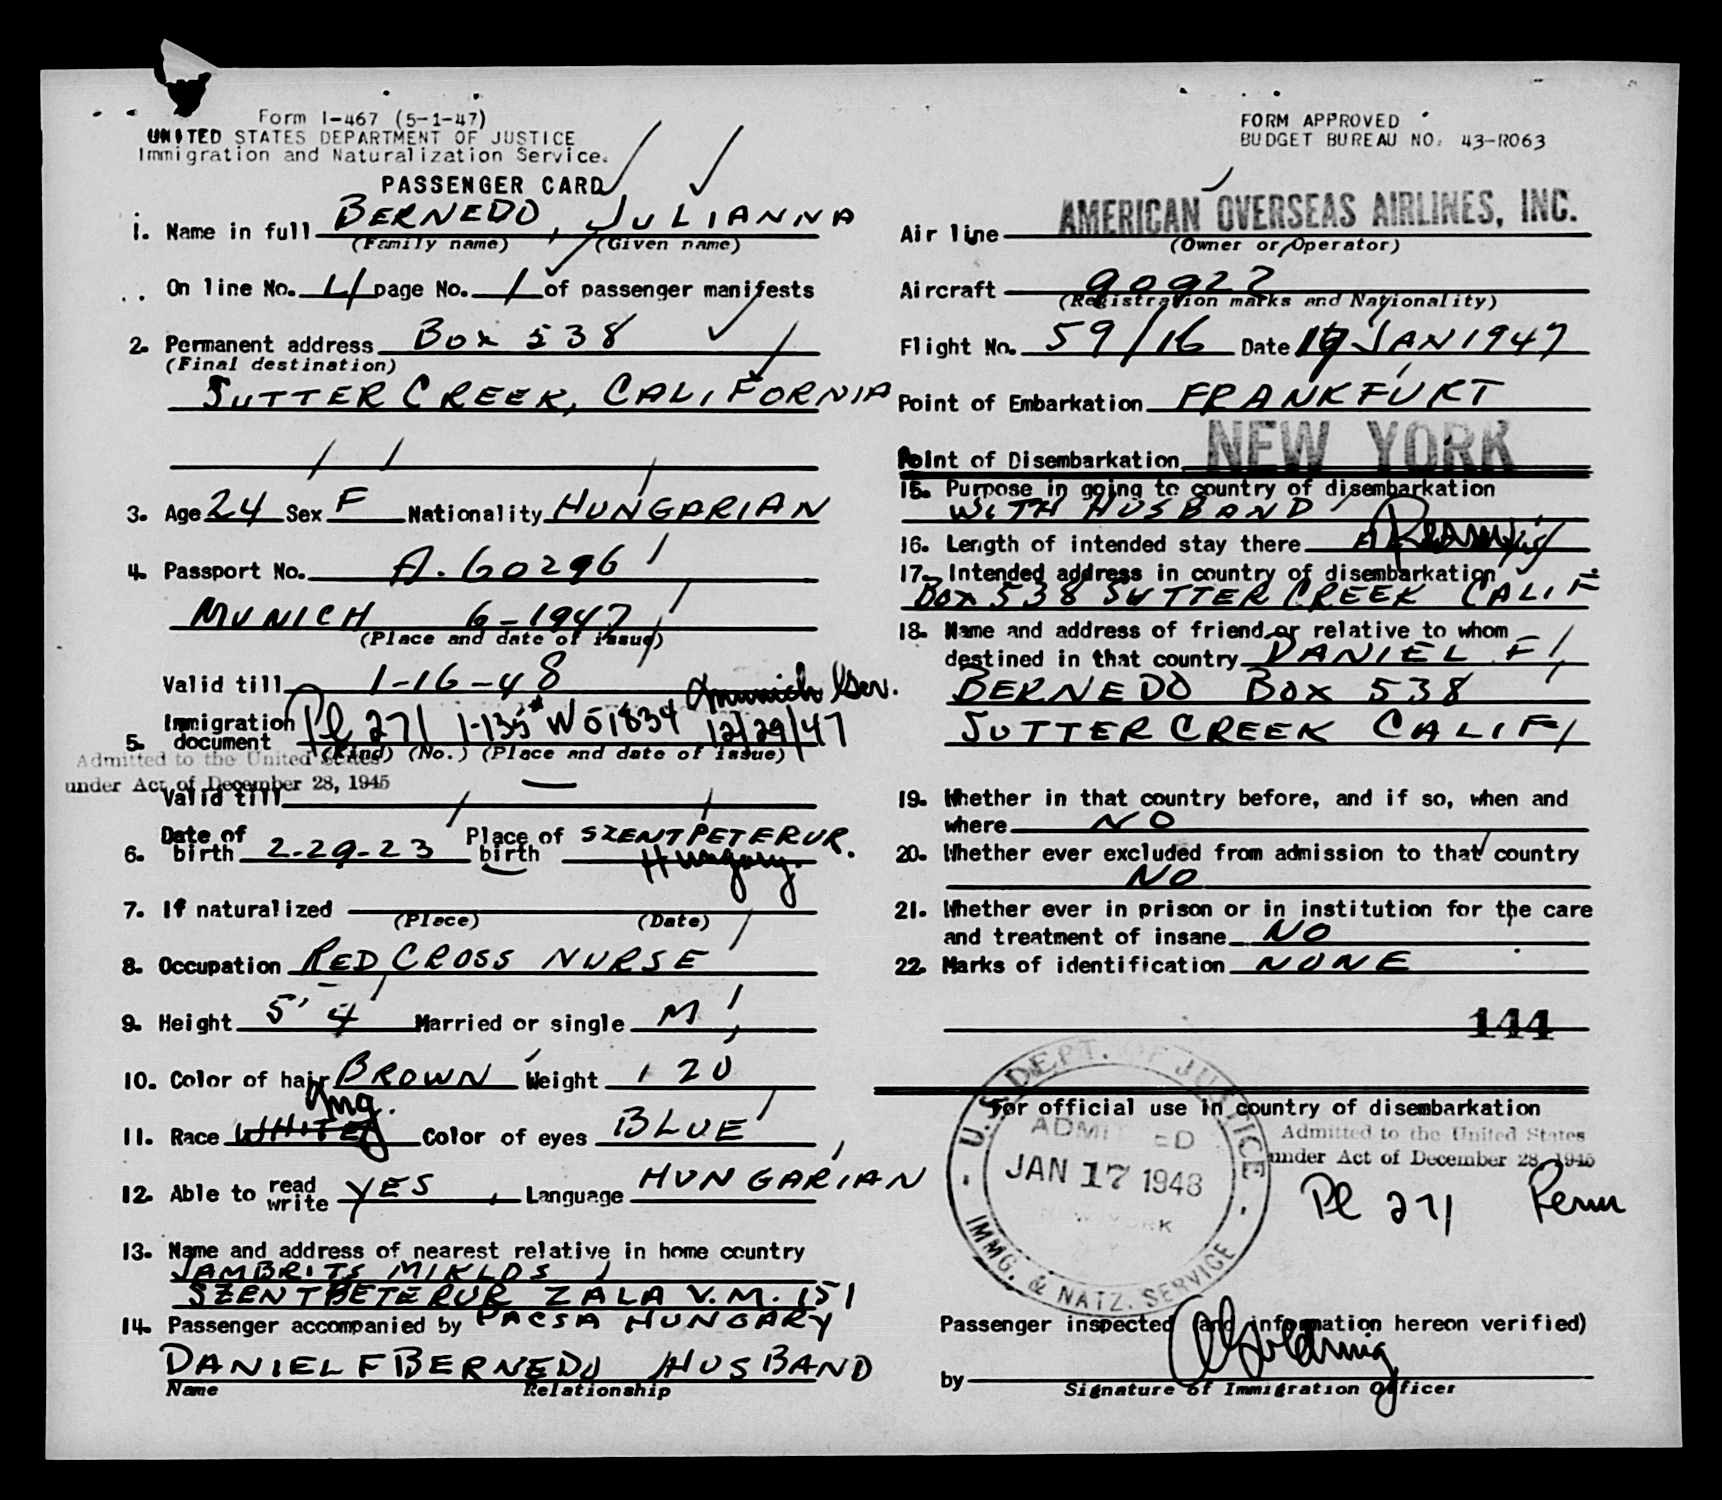 Form I-467 (5-1-47)
UNITED STATES DEPARTMENT OF JUSTICE
Immigration and Naturalization Service.
PASSENGER CARD
1. Name in full BERNEDO, JULIANNA
(Family name) (Given name)
On line No. 4 page No. 1 of passenger manifests
2. Permanent address Box 538
(Final destination)
SUTTER CREEK, CALIFORNIA
3. Age 24 Sex F Nationality HUNGARIAN
4. Passport No. A. 60296
MUNICH 6-1947
(Place and date of issue)
Valid till 1-16-48
Munich Ger.
5. Immigration document Pl 271 I-135 W 51834 12/29/47
(Kind) (No.) (Place and date of issue)
Admitted to the United States
under Act of December 28, 1945
Valid till
6. Date of birth 2-29-23 Place of birth SZENTPETERUR.
Hungary.
7. If naturalized
(Place) (Date)
8. Occupation RED CROSS NURSE
9. Height 5' 4 Married or single M
10. Color of hair BROWN Weight 120
Mag.
11. Race WHITE Color of eyes BLUE
12. Able to read write YES, Language HUNGARIAN
13. Name and address of nearest relative in home country
JAMBRITS MIKLOS
SZENTPETERUR ZALA V.M. 151
PACSA HUNGARY
14. Passenger accompanied by
DANIEL F BERNEDO HUSBAND
Name Relationship
FORM APPROVED
BUDGET BUREAU NO. 43-R063
Air line AMERICAN OVERSEAS AIRLINES, INC.
(Owner or Operator)
Aircraft 90922
(Registration marks and Nationality)
Flight No. 59/16 Date 16 JAN 1947
Point of Embarkation FRANKFURT
Point of Disembarkation NEW YORK
15. Purpose in going to country of disembarkation
WITH HUSBAND
16. Length of intended stay there
17. Intended address in country of disembarkation
BOX 538 SUTTER CREEK CALIF
18. Name and address of friend or relative to whom
destined in that country DANIEL F
BERNEDO BOX 538
SUTTER CREEK CALIF
19. Whether in that country before, and if so, when and
where NO
20. Whether ever excluded from admission to that country
NO
21. Whether ever in prison or in institution for the care
and treatment of insane NO
22. Marks of identification NONE
144
For official use in country of disembarkation
U.S. DEPT. OF JUSTICE
ADMITTED
JAN 17 1948
NEW YORK
IMMG. & NATZ. SERVICE
Admitted to the United States
under Act of December 28, 1945
Pl 271 Perm
Passenger inspected (and information hereon verified)
by
Signature of Immigration Officer